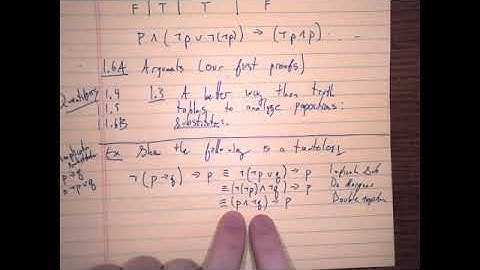 F | T | T | F
P ∧ (¬p ∨ ¬(¬p)) → (¬p ∧ p) ...
1.6A Arguments (our first proofs)
Quantifiers 1.4 1.3 A better way than truth
1.5 tables to analyze propositions:
1.6B Substitution.
Ex Show the following is a tautology
p → q
≡ ¬p ∨ q
¬(p → q) → p ≡ ¬(¬p ∨ q) → p Implication Sub
≡ (¬(¬p) ∧ ¬q) → p De Morgans
≡ (p ∧ ¬q) → p Double negation